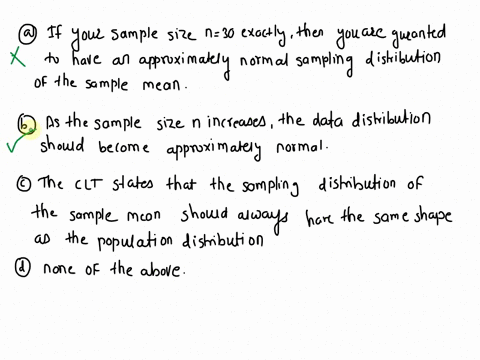 (a) If your sample size n=30 exactly, then you are guranted
to have an approximately normal sampling distribution
of the sample mean.
(b) As the sample size n increases, the data distribution
should become approximately normal.
(c) The CLT states that the sampling distribution of
the sample mean should always have the same shape
as the population distribution
(d) none of the above.